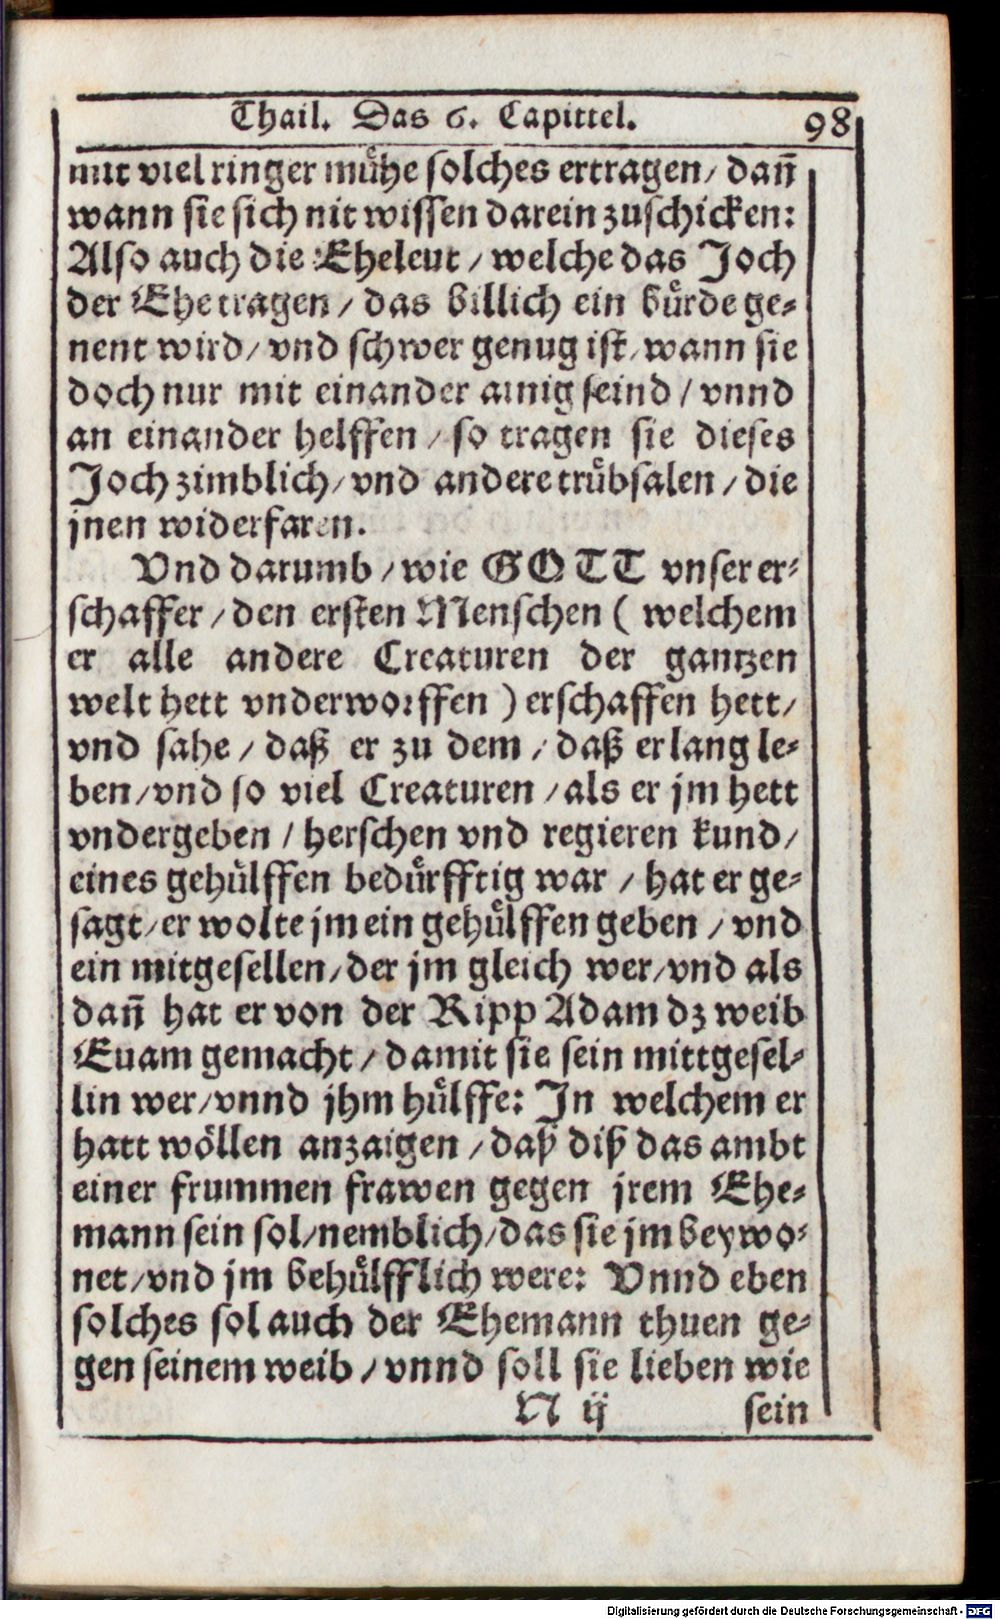 Thail. Das 6. Capittel. 98
mit viel ringer mühe solches ertragen/ dañ
wann sie sich nit wissen darein zuschicken:
Also auch die Eheleut / welche das Joch
der Ehe tragen / das billich ein bürde ge-
nent wird/ vnd schwer genug ist/ wann sie
doch nur mit einander ainig seind / vnnd
an einander helffen / so tragen sie dieses
Joch zimblich/ vnd andere trübsalen / die
jnen widerfaren.
Vnd darumb / wie GOTT vnser er-
schaffer / den ersten Menschen ( welchem
er alle andere Creaturen der gantzen
welt hett vnderworffen ) erschaffen hett/
vnd sahe / daß er zu dem / daß er lang le-
ben/ vnd so viel Creaturen / als er jm hett
vndergeben / herschen vnd regieren kund/
eines gehülffen bedürfftig war / hat er ge-
sagt/ er wolte jm ein gehülffen geben / vnd
ein mitgesellen/ der jm gleich wer/ vnd als
dañ hat er von der Ripp Adam dz weib
Euam gemacht / damit sie sein mittgesel-
lin wer/ vnnd jhm hülffe: In welchem er
hatt wöllen anzaigen / daß diß das ambt
einer frummen frawen gegen jrem Ehe-
mann sein sol/ nemblich/ das sie jm beywo-
net/ vnd jm behülfflich were: Vnnd eben
solches sol auch der Ehemann thuen ge-
gen seinem weib / vnnd soll sie lieben wie
N ij sein
Digitalisierung gefördert durch die Deutsche Forschungsgemeinschaft - DFG